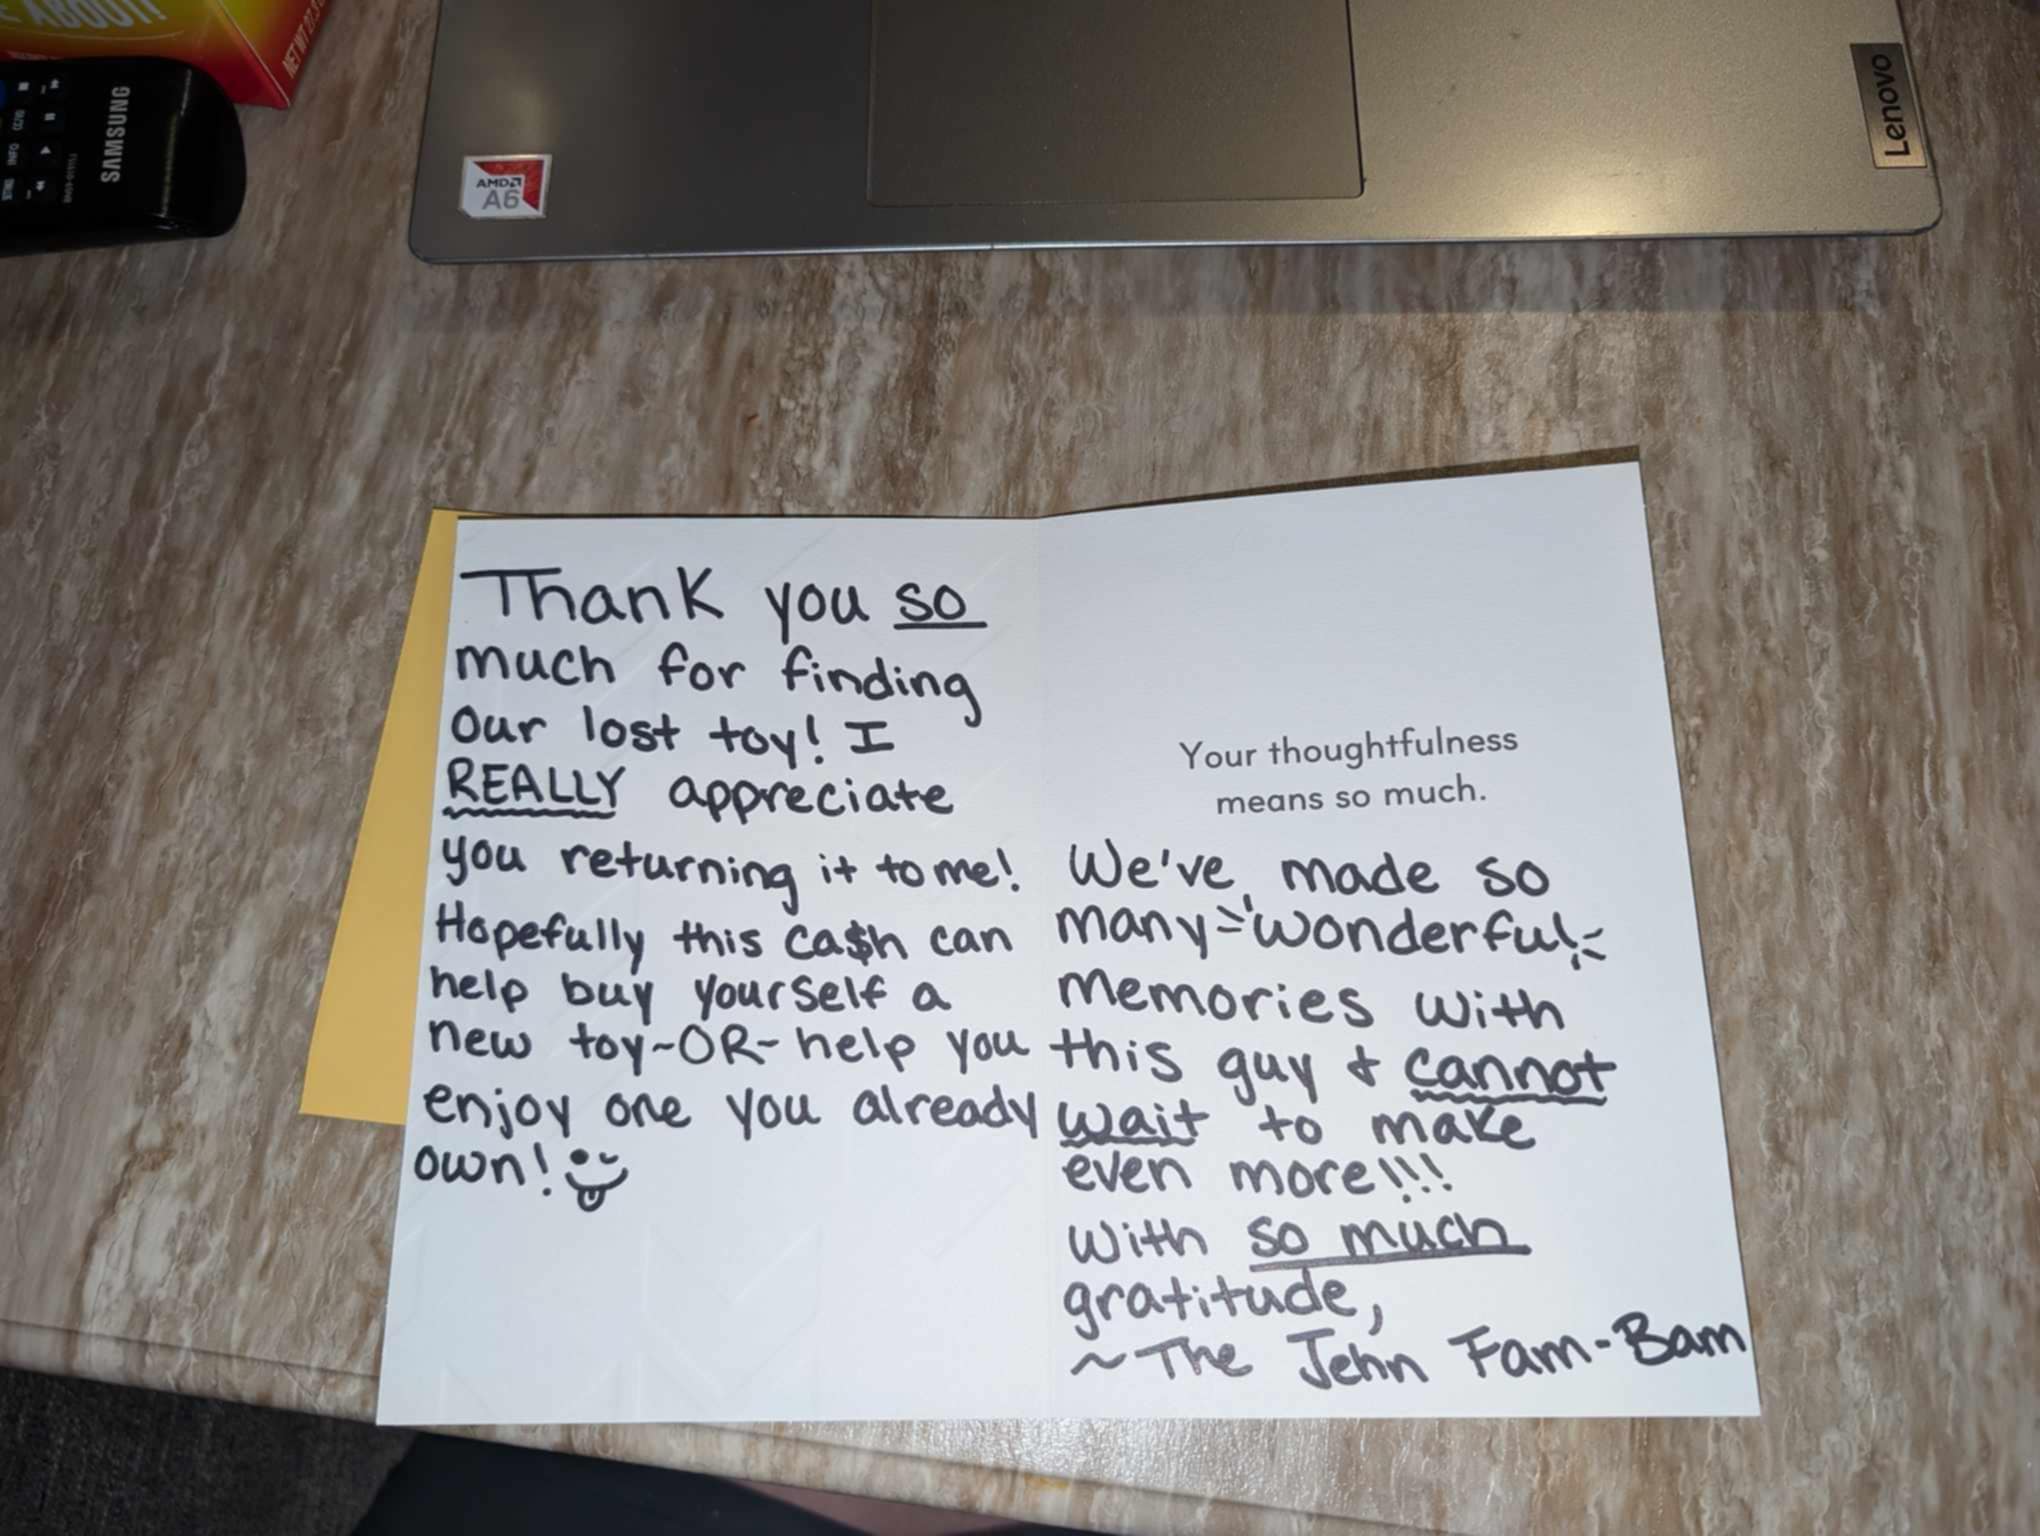 E ABOUT!
NET WT 27.3
SAMSUNG
INFO
AMD
A6
Lenovo
Thank you so
much for finding
our lost toy! I
REALLY appreciate
you returning it to me!
Hopefully this ca$h can
help buy yourself a
new toy~OR~help you
enjoy one you already
own!
Your thoughtfulness
means so much.
We've made so
many wonderful
memories with
this guy + cannot
wait to make
even more!!!
With so much
gratitude,
~The Jehn Fam-Bam